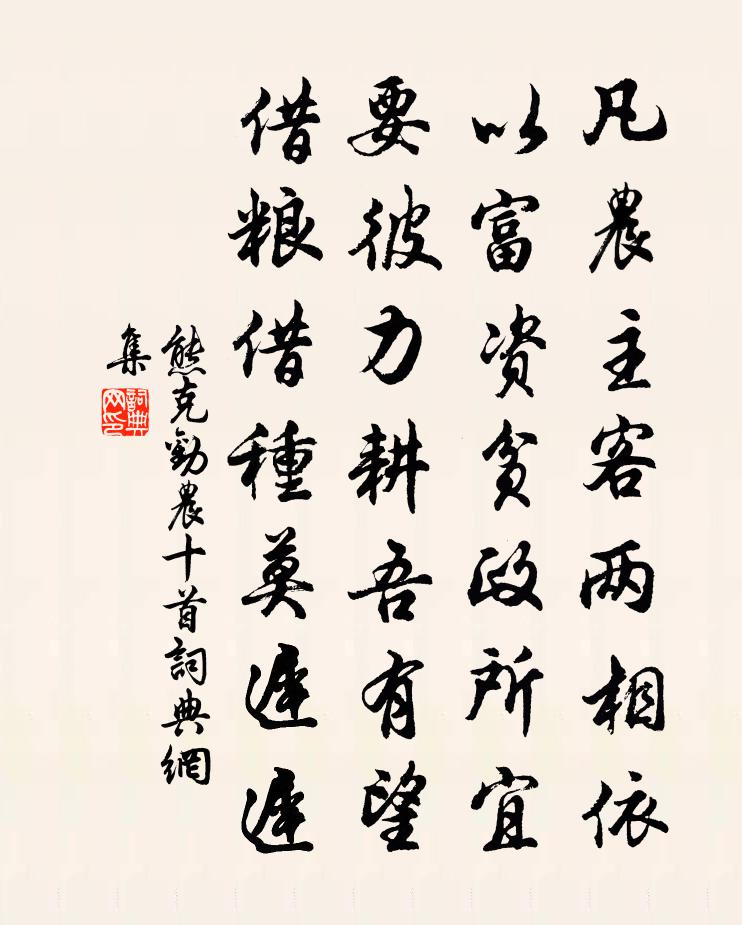 凡農主客两相依
以富资贫政所宜
要彼力耕吾有望
借粮借種莫遲遲
熊克勸農十首詞典網
集
詞典网印